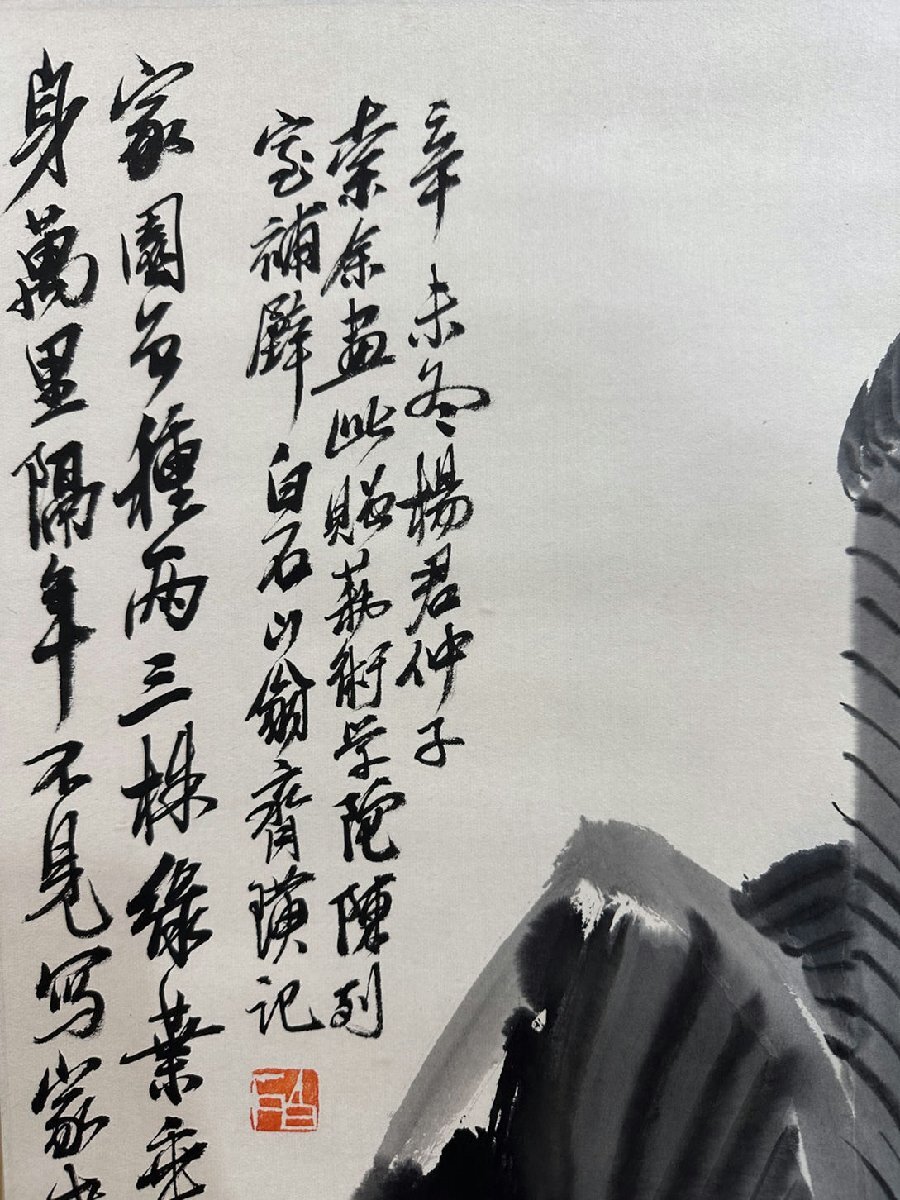 辛未冬楊君仲子
索余畫此貽藝術学院陳列
室補壁白石山翁齊璜記
家園曾種兩三株綠葉垂
身萬里隔年不見寫家